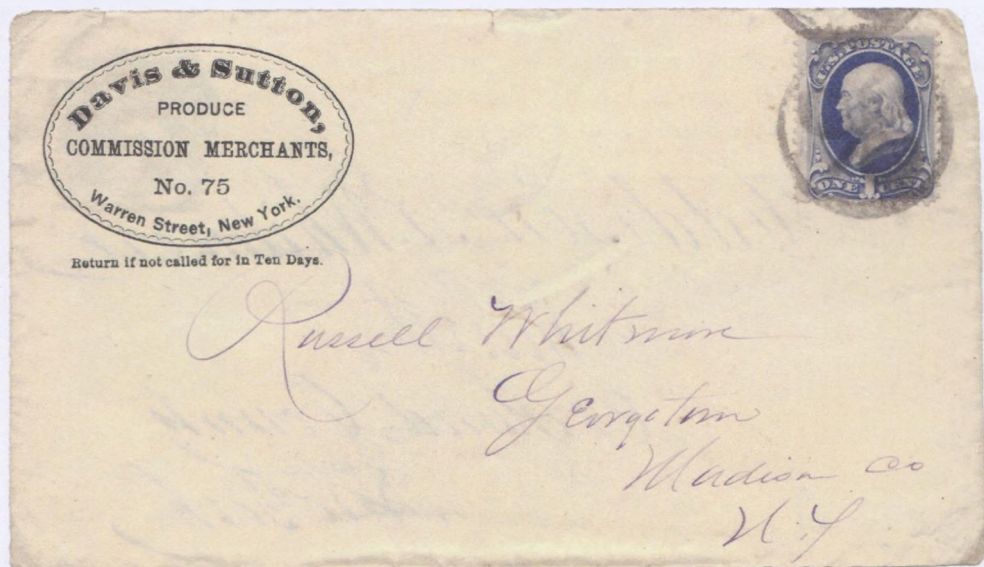 Davis & Sutton,
PRODUCE
COMMISSION MERCHANTS,
No. 75
Warren Street, New York.
Return if not called for in Ten Days.
U.S. POSTAGE
ONE 1 CENT
Russell Whitmore
Georgetown
Madison Co
N.Y